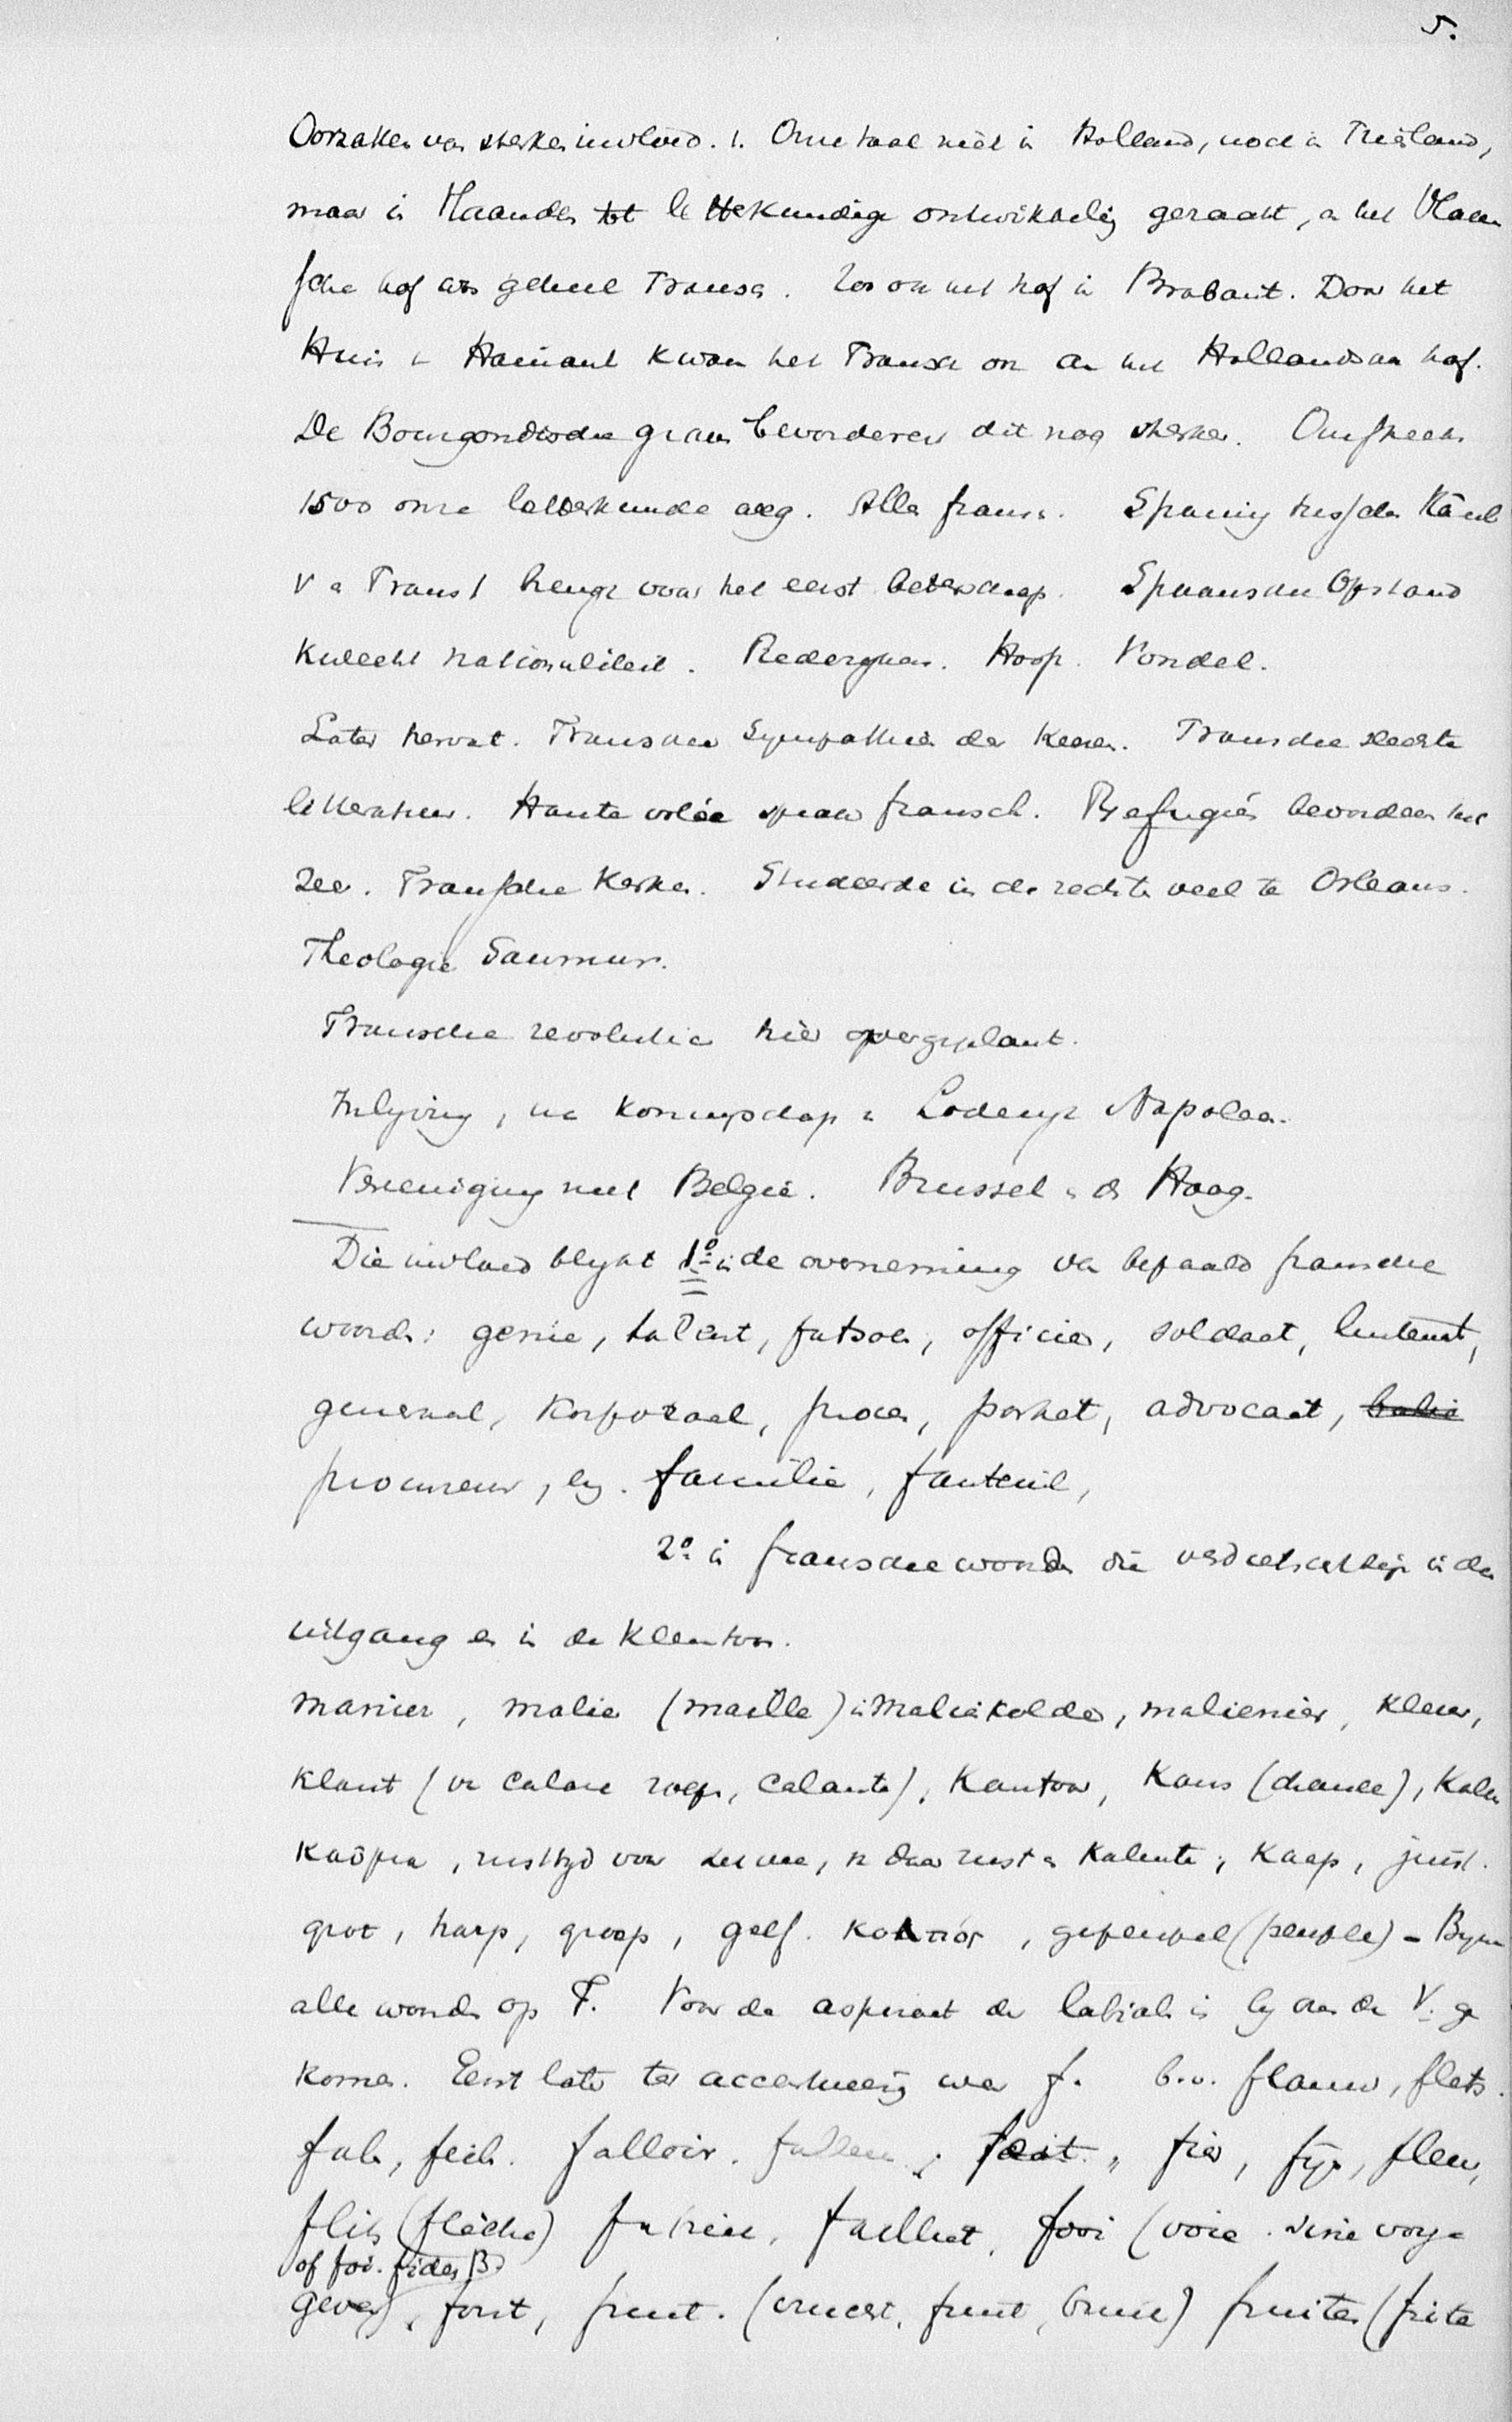 5.
Oorzaken van sterken invloed. 1. Onze taal niet in Holland, noch in Friesland,
maar in Vlaanderen tot letterkundige ontwikkeling geraakt, en het Vlaam
sche hof was geheel Fransch. Zoo ook het hof in Brabant. Door het
Huis v Hainaut kwam het Fransch ook aan het Hollandsche hof.
De Bourgondische graven bevorderen dit nog sterker. Omstreeks
1500 onze letterkunde weg. Alles fransch. Spanning tusschen Karel
V en Frans I brengt voor het eerst beterschap. Spaansche Opstand
kweekt nationaliteit. Rederijkers. Hooft. Vondel.
Later hervat. Fransche Sympathieën der Keezen. Fransche slechte
litteratuur. Haute volée sprak fransch. Refugiés bevorderen het
zeer. Fransche Kerken. Studeerde in de rechten veel te Orleans.
Theologie Saumur.
Fransche revolutie hier overgeplant.
Inlijving, na koningschap v Lodewijk Napoleon.
Vereeniging met België. Brussel en de Haag.
Die invloed blijkt 1º in de overneming van bepaald fransche
woorden: genie, talent, fatsoen, officier, soldaat, luitenant,
generaal, korporaal, proces, parket, advocaat, balie
procureur, enz. familie, fauteuil,
2º in fransche woorden die verdietscht zijn in den
uitgang en in de klemtoon.
manier, malie (maille) in Maliënkolder, maliënier, kleur,
klant (v calare roepen, calante), kantoor, kans (chance), kalm
rusttijd voor het vee, en daar rust en kalmte, kaap, juist.
grot, harp, groep, golf. κολπος, gepeupel (peuple) - Bijna
alle woorden op F. Voor de aspiraat der labiale is bij ons de V. ge
komen. Eerst later ter accentueering weer f. b.v. flauw, flets.
falen, feil. falloir. fallen, feit, fier, fijn, fleur,
flits (flèche) fatsoen, failliet, fooi (voie
of foi. fides B)
geven), fort, front. fruiten (frite